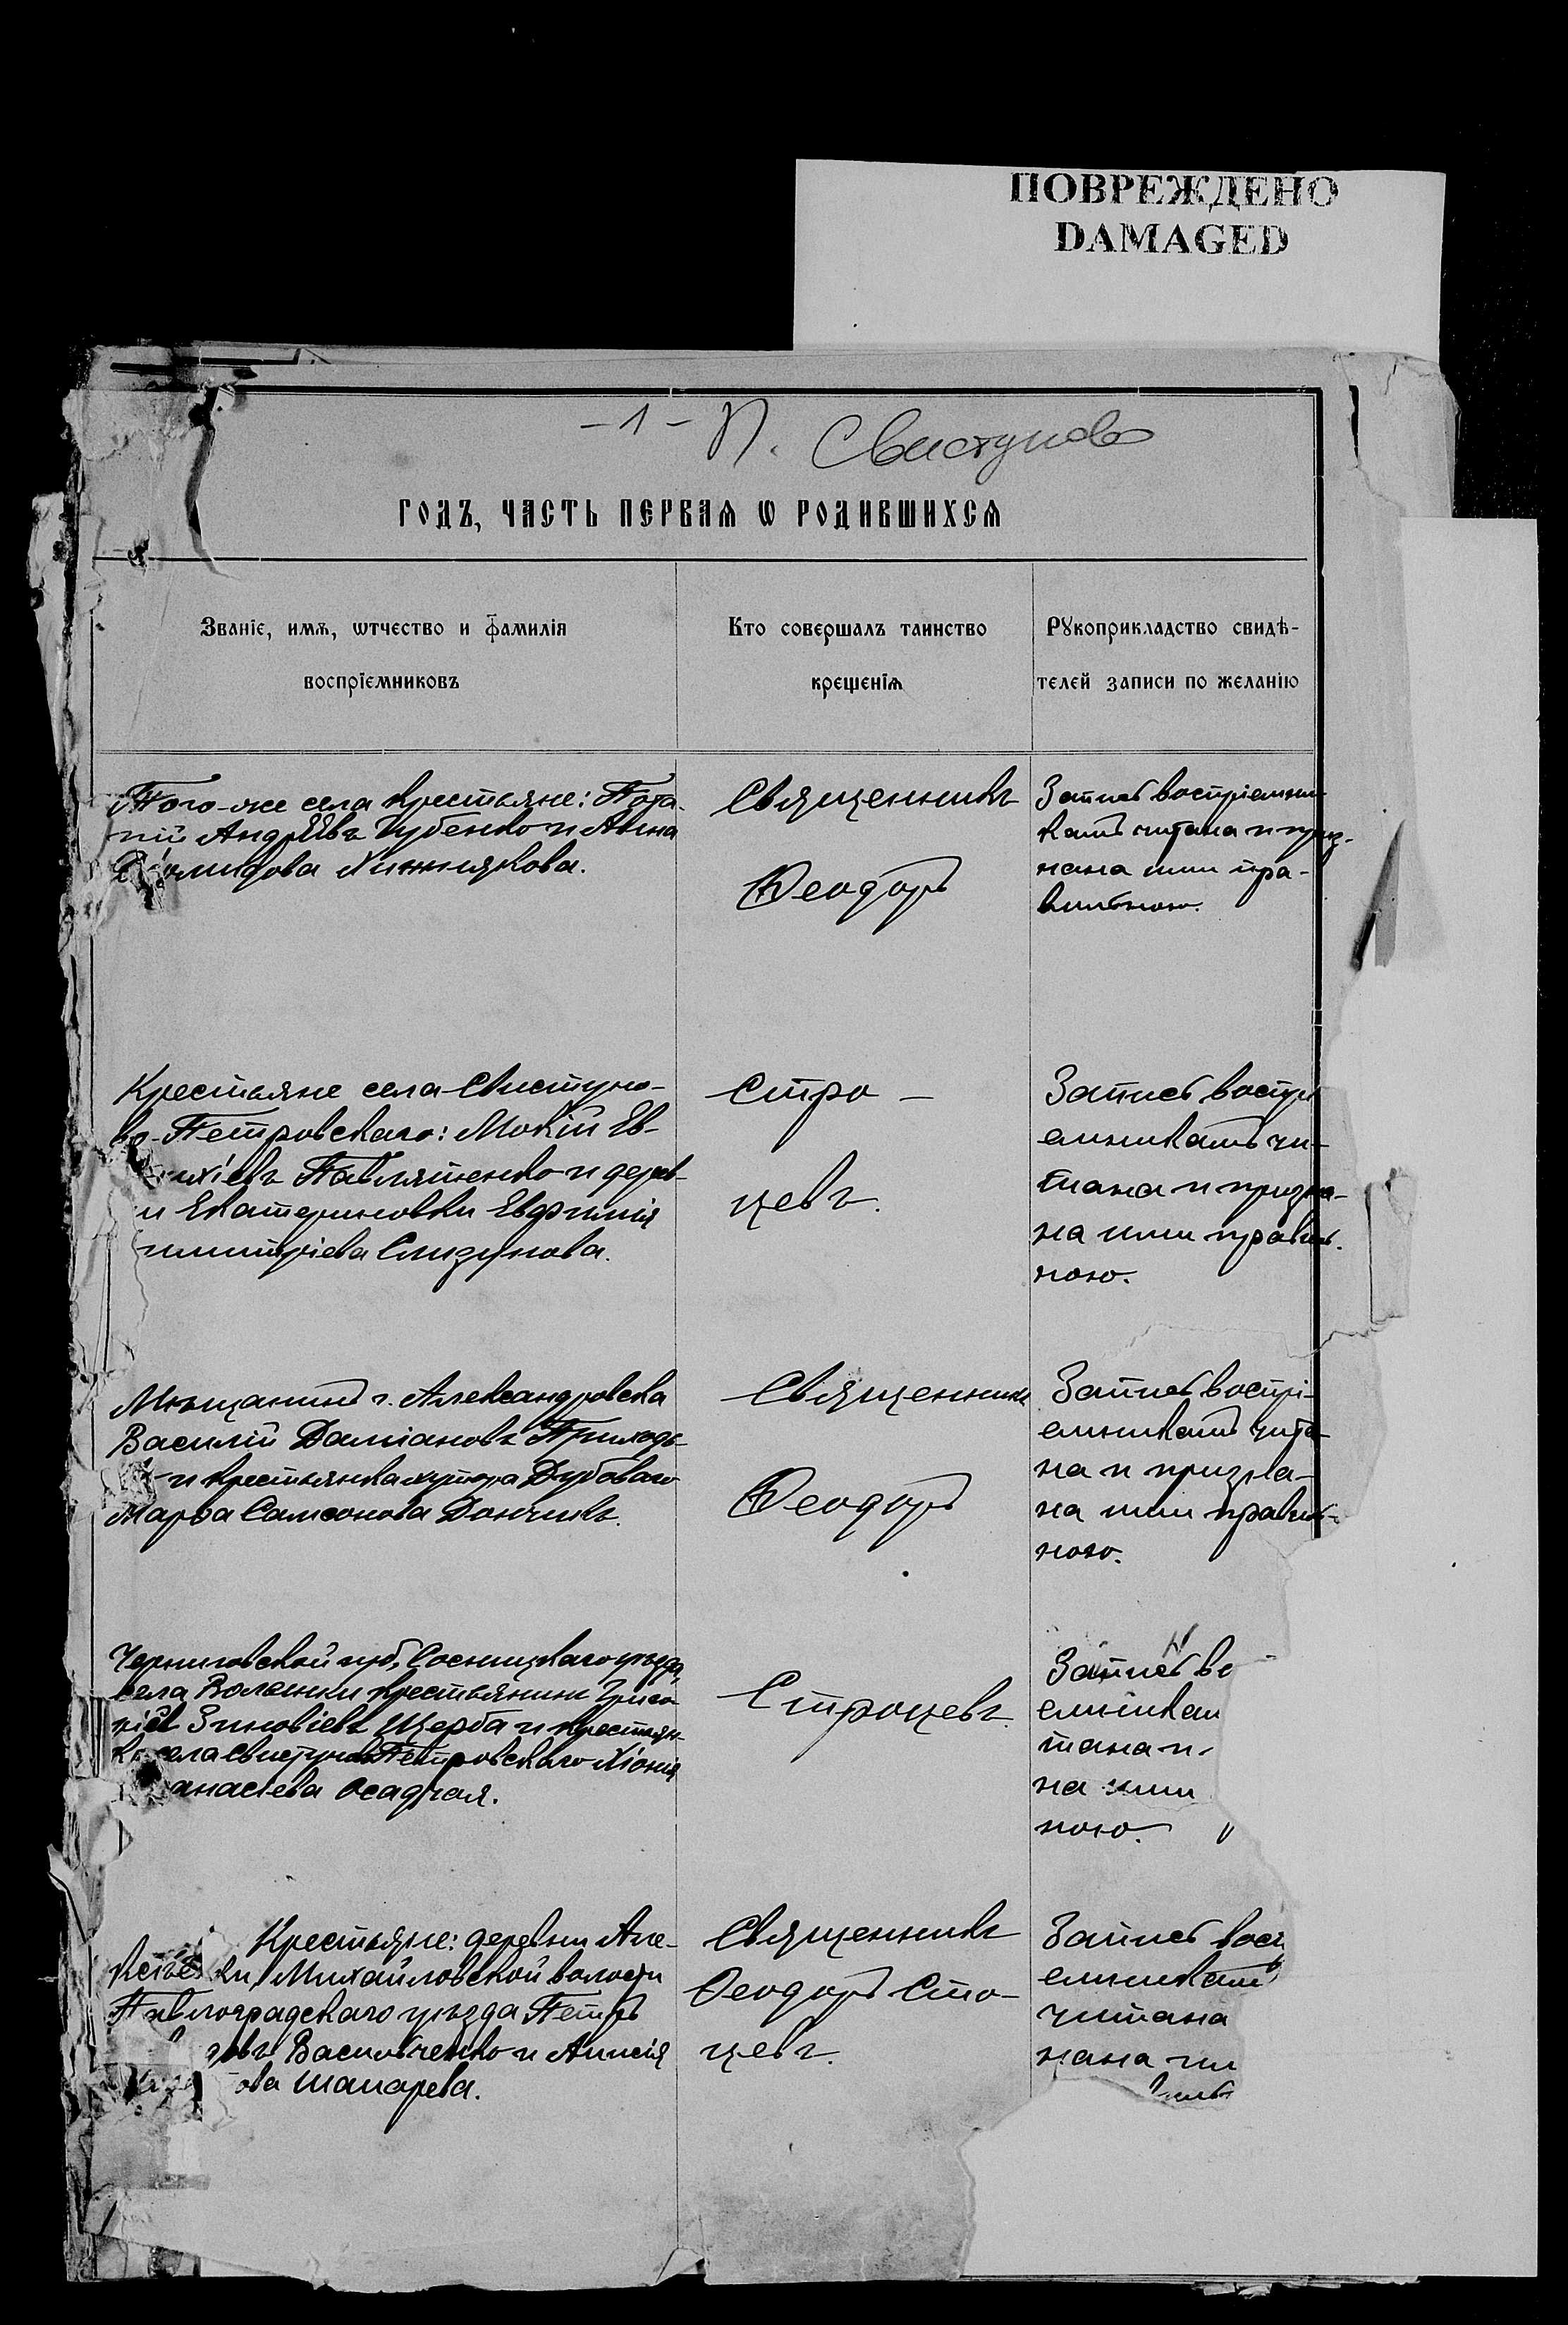 ПОВРЕЖДЕНО
DAMAGED
- 1 - П. Свистуново
ГОДЪ, ЧАСТЬ ПЕРВАѦ Ѡ РОДИВШИХСѦ
Званіе, имѧ, ѿтчество и фамилія
воспріемниковъ
Кто совершалъ таинство
крещеніѧ
Рꙋкоприкладство свидѣ-
телей записи по желанію
Того-же села крестьяне: Пота-
пій Андрѣевъ Губенко и Анна
Хижнякова.
Священникъ
Ѳеодоръ
Запись воспріемни-
камъ читана и приз-
нана ими пра-
вильною.
Крестьяне села Свистуно-
во-Петровскаго: Мокій Ев-
Павлятенко и дерев-
и Екатериновки Евфимія
Слизунова.
Стро -
цевъ.
Запись воспрі
емникамъ чи-
тана и призна-
на ими правиль-
ною.
Мѣщанинъ г. Александровска
Василій Даміановъ Приходь-
и крестьянка хутора Дубоваго
Марѳа Самсонова Дончикъ.
Священникъ
Ѳеодоръ
Запись воспрі-
емникамъ чита-
на и призна-
на ими правиль-
ною.
Черниговской губ., Сосницкаго уѣзда,
села Волынки крестьянинъ Григо-
рій Зиновіевъ Щерба и крестьян-
ка села Свистуново-Петровскаго Хіонія
анасіева Осадчая.
Строцевъ.
Запись во
емникам
тана и
на ими
ною.
Крестьяне: деревни Але-
ки Михайловской волости
Павлоградскаго уѣзда Петръ
овъ Васильченко и Анисія
ова Шапарева.
Священникъ
Ѳеодоръ Сто-
цевъ.
Запись восп
емникамъ
читана
нана им
виль